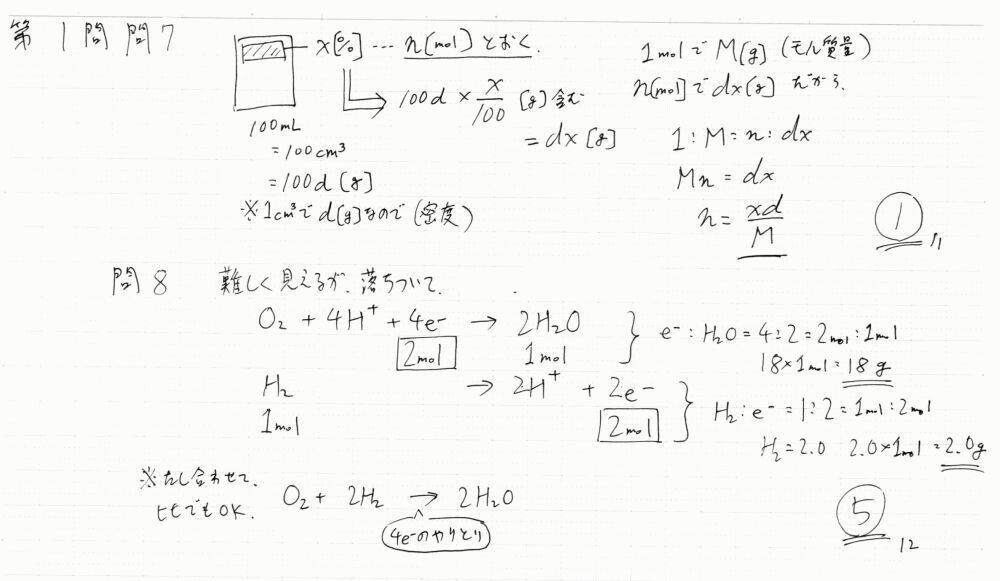 第1問 問7
x[%] … n[mol] とおく.
100d × x/100 [g] 含む
= dx [g]
100mL
= 100cm³
= 100d [g]
※1cm³で d[g]なので (密度)
1molで M[g] (モル質量)
n[mol]で dx[g] だから.
1 : M = n : dx
Mn = dx
n = xd/M
① 11
問8 難しく見えるが、落ちついて.
O₂ + 4H⁺ + 4e⁻ → 2H₂O
2mol 1mol
e⁻ : H₂O = 4 : 2 = 2mol : 1mol
18×1mol = 18 g
H₂ → 2H⁺ + 2e⁻
1mol 2mol
H₂ : e⁻ = 1 : 2 = 1mol : 2mol
H₂ = 2.0 2.0×1mol = 2.0g
※たし合わせて、
ヒヒでもOK.
O₂ + 2H₂ → 2H₂O
4e⁻のやりとり
⑤ 12